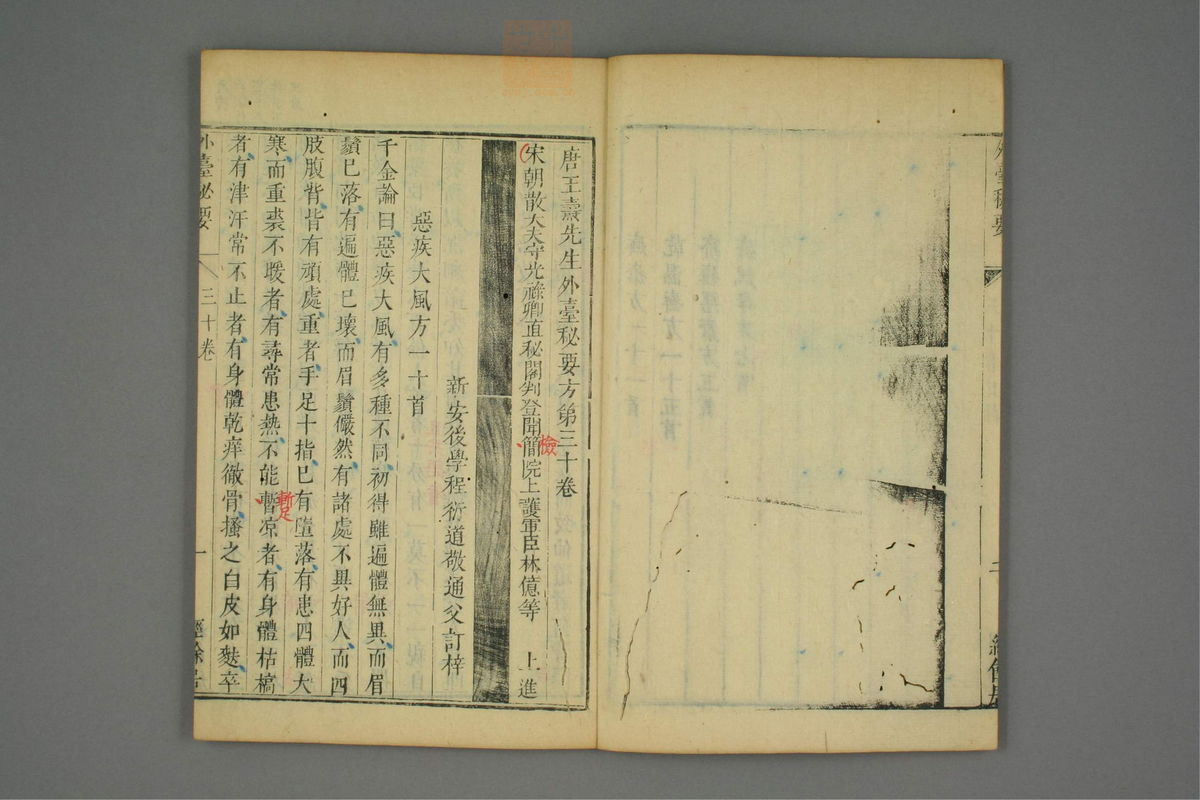 唐王燾先生外臺秘要方第三十卷
宋朝散大夫守光祿卿直秘閣判登聞簡院上護軍臣林億等 上進
檢
新安後學程衍道敬通父訂梓
惡疾大風方一十首
千金論曰惡疾大風有多種不同初得雖遍體無異而眉
鬚已落有遍體已壞而眉鬚儼然有諸處不異好人而四
肢腹背皆有頑處重者手足十指已有墮落有患四體大
寒而重裘不暖者有尋常患熱不能暫凉者有身體枯槁
者有津汗常不止者有身體乾痒徹骨搔之白皮如麩卒
外臺秘要 三十卷 一 經餘居
外臺秘要